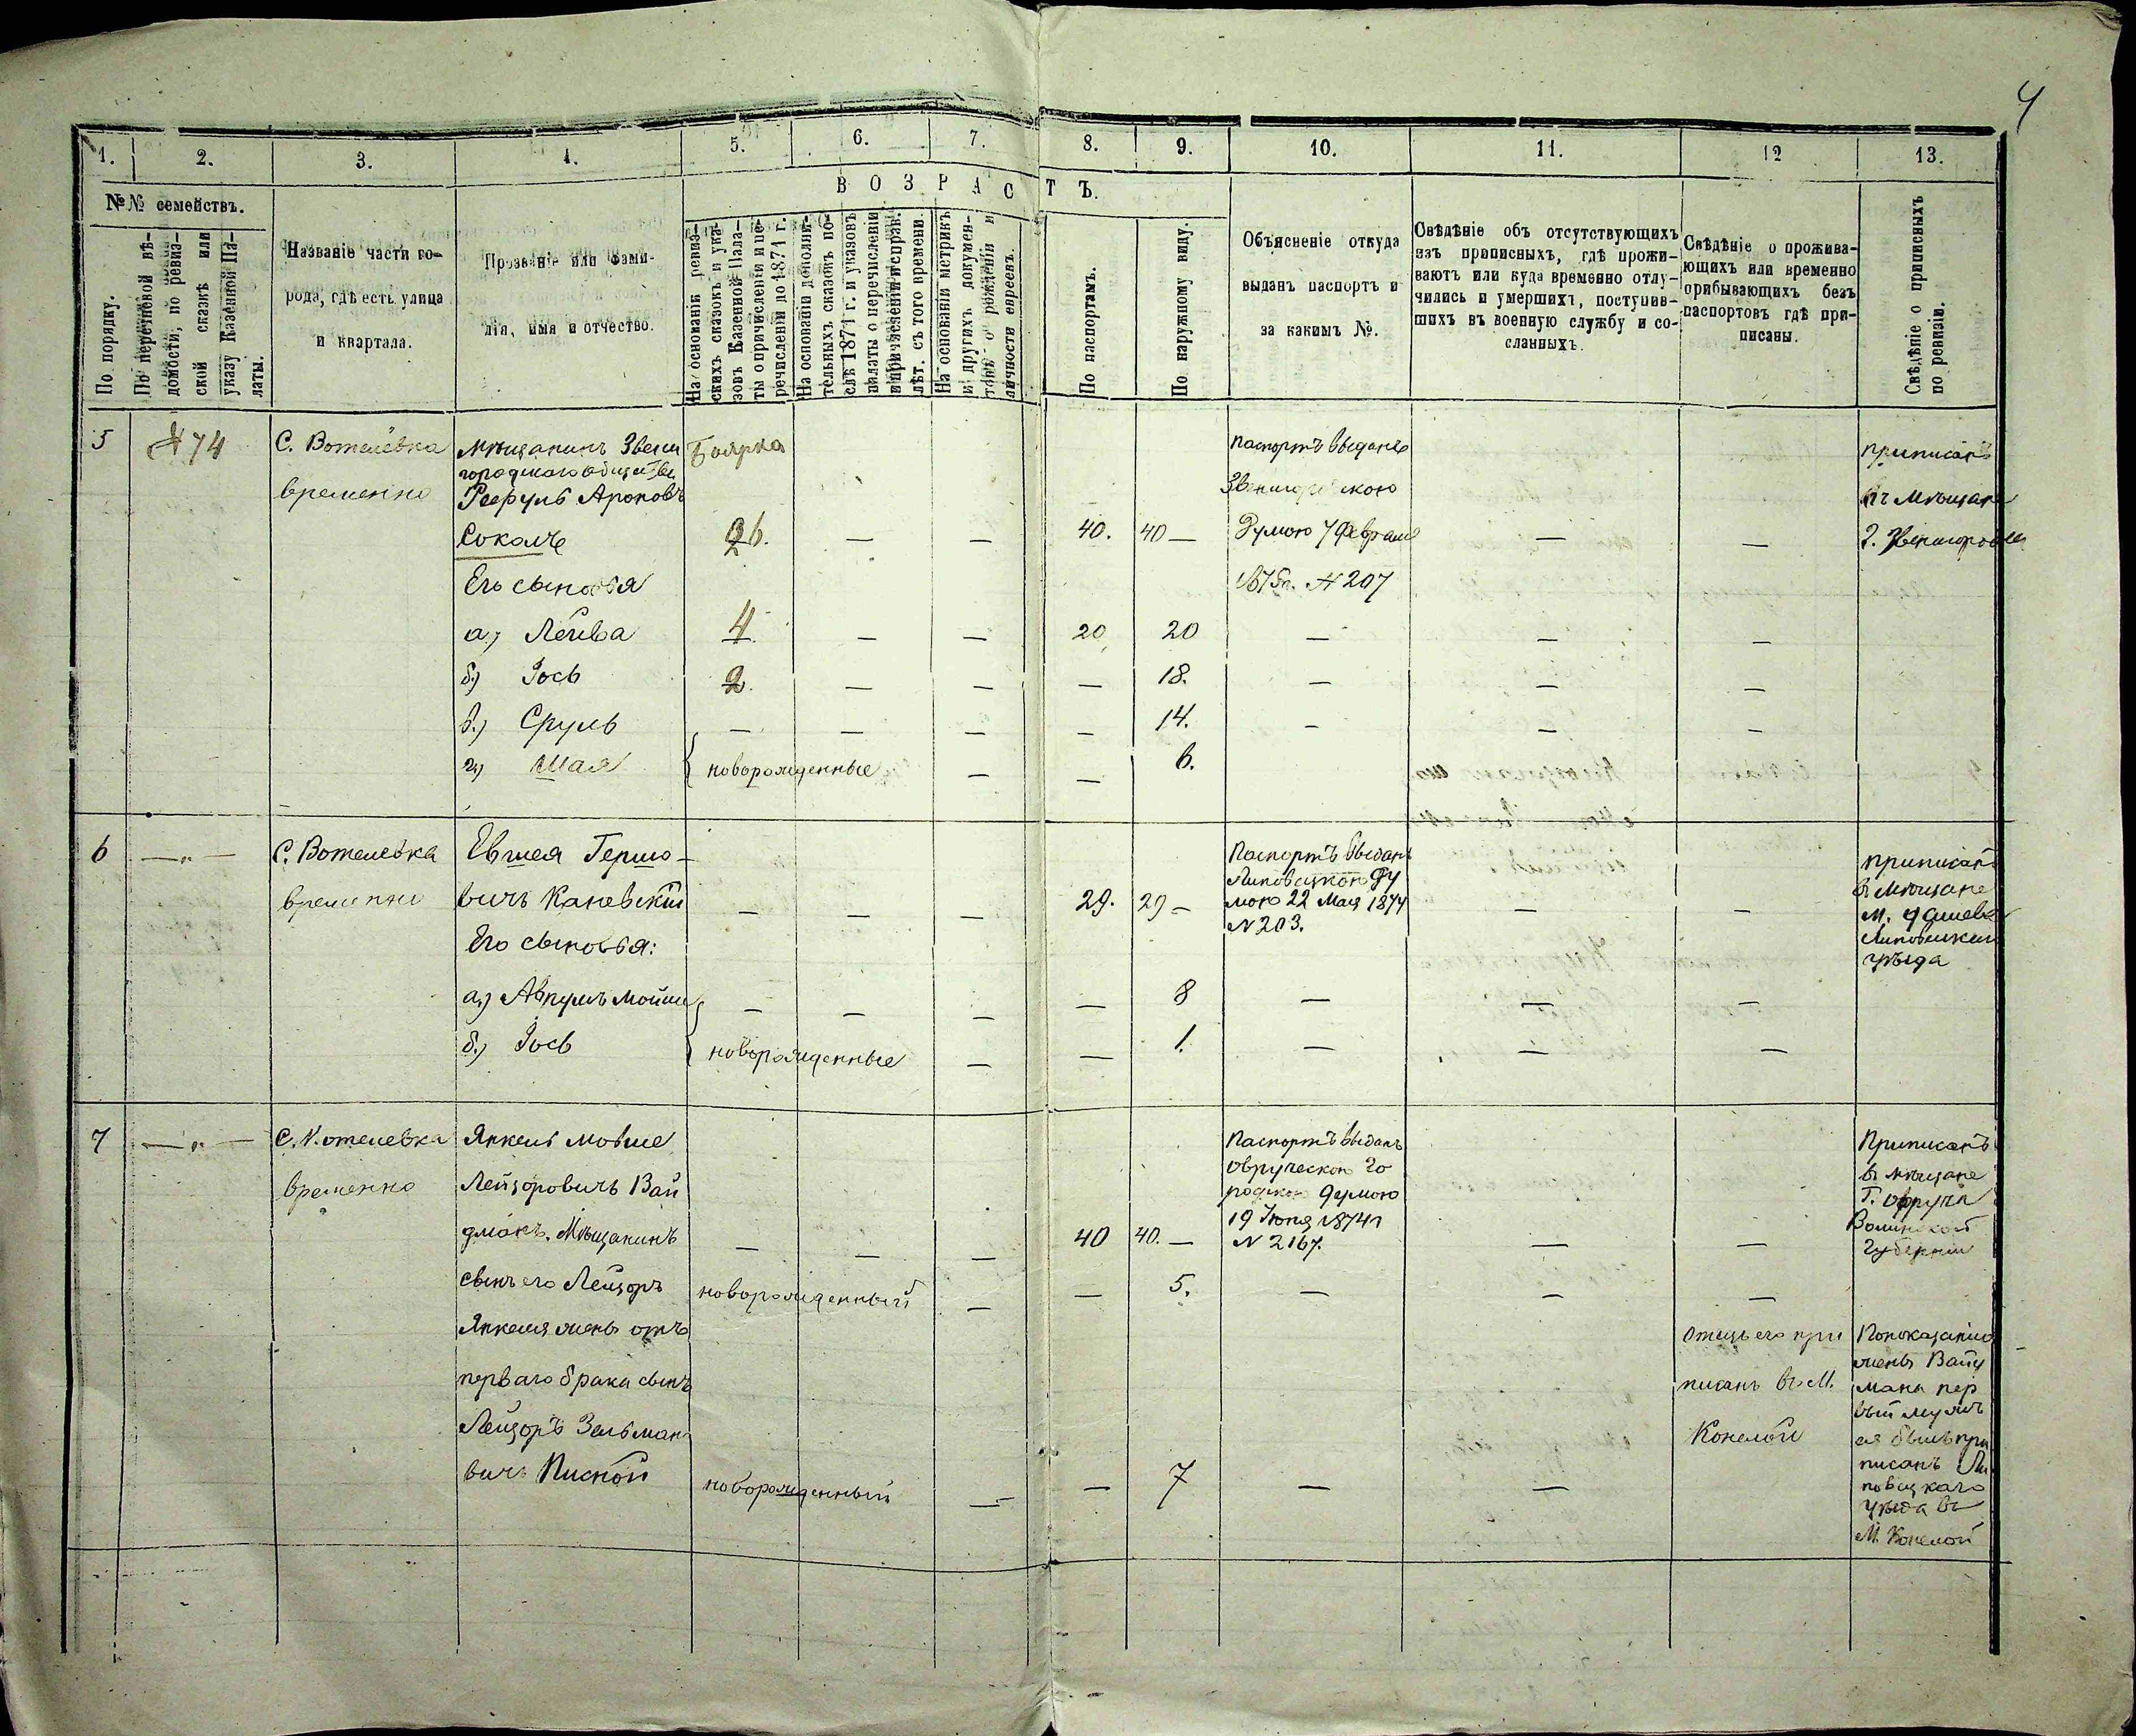 4
1. 2. 3. 4. 5. 6. 7. 8. 9. 10. 11. 12 13.
ВОЗРАСТЪ.
№№ семействъ.
По порядку.
По перечневой вѣ-
домости, по ревиз-
ской сказкѣ или
указу Казенной Па-
латы.
Названіе части го-
рода, гдѣ есть улица
и квартала.
Прозваніе или фами-
лія, имя и отчество.
На основаніи ревиз-
скихъ сказокъ и ука-
зовъ Казенной Пала-
ты о причисленіи и пе-
речисленіи до 1871 г.
На основаніи дополни-
тельныхъ сказокъ по-
слѣ 1871 г. и указовъ
палаты о перечисленіи
и причисленіи и исправ.
лѣт. съ того времени.
На основаніи метрикъ
и другихъ докумен-
товъ о рожденіи и
личности евреевъ.
По паспортамъ.
По наружному виду.
Объясненіе откуда
выданъ паспортъ и
за какимъ №.
Свѣдѣніе объ отсутствующихъ
изъ приписныхъ, гдѣ прожи-
ваютъ или куда временно отлу-
чились и умершихъ, поступив-
шихъ въ военную службу и со-
сланныхъ.
Свѣдѣніе о прожива-
ющихъ или временно
прибывающихъ безъ
паспортовъ гдѣ при-
писаны.
Свѣдѣніе о приписныхъ
по ревизіи.
5 №74 С. Вотелевка
временно
Мѣщанинъ Звени
городскаго общества
Рефуль Ароновъ
Сокалъ
Боярка
26. — — 40. 40 —
Паспортъ выданъ
Звенигородскою
Думою 7 Февраля
1875г. №207
— —
приписанъ
въ Мѣщане
г. Звенигородки
Его сыновья
а.) Лейва 4 — — 20 20 — — —
б.) Іось 2. — — — 18. — — —
в.) Сруль — — — — 14. — — —
г.) Шая новорожденные — — 6.
6 —„— С. Вотелевка
временно
Евшея Гершо-
вичъ Каневскій — — — 29. 29 —
Паспортъ выданъ
Липовецкою Ду
мою 22 Мая 1874
№203.
— —
приписанъ
въ Мѣщане
м. Дашева
Липовецкаго
уѣзда
Его сыновья:
а.) Авпумъ Мойше — — — — 8 — — —
б.) Іось новорожденные — — 1. — — —
7 —„— С. Вотелевка
временно
Янкель Мовше
Лейзоровичъ Вай
дманъ. Мѣщанинъ — — — 40 40. —
Паспортъ выданъ
Овручскою Го
родскою Думою
19 Іюня 1874г
№ 2167.
— —
Приписанъ
въ мѣщане
Г. Овруча
Волинской
Губерніи
сынъ его Лейзоръ новорожденный — — 5. — — —
Янкеля жены отъ
перваго брака сынъ
Лейзоръ Зельмано
вичъ Писной новорожденный — — 7 — —
Отецъ его при
писанъ въ М.
Конелой
По показанію
жены Вайд
мана пер
вый мужъ
ея былъ при
писанъ Ли
повецкаго
уѣзда въ
М. Конелой